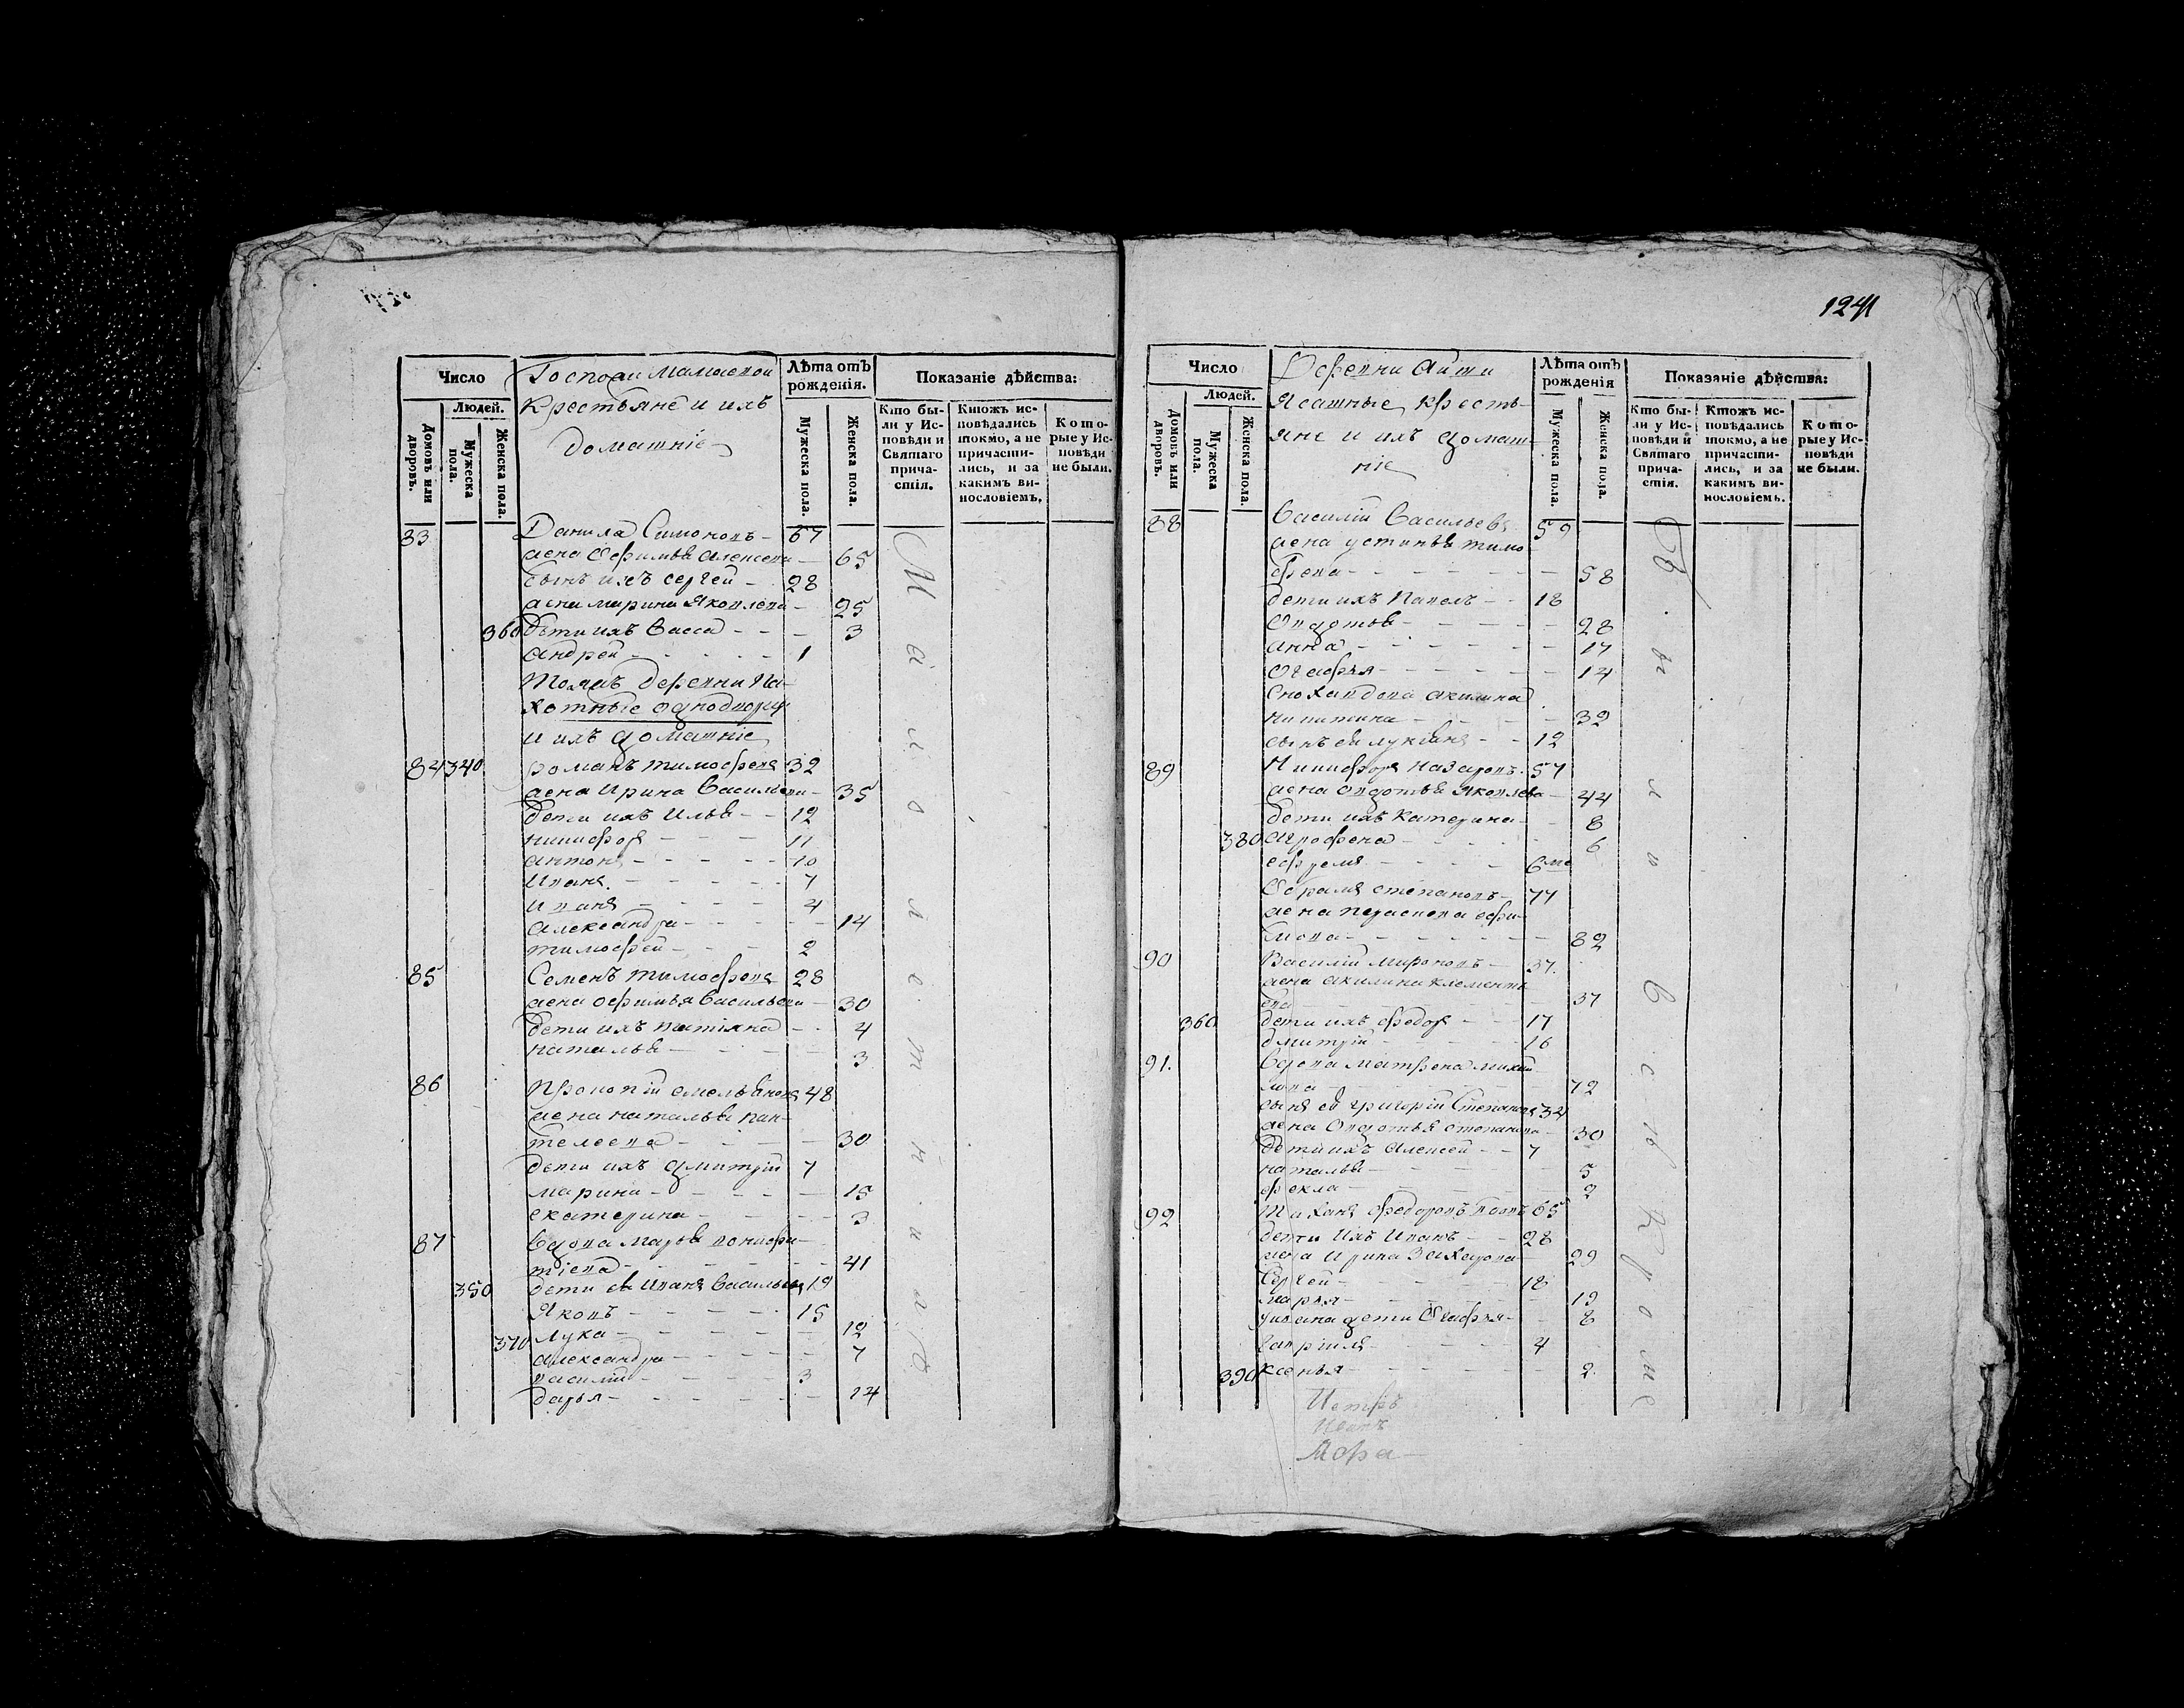 Число
Людей.
Домовъ или дворовъ.
Мужеска пола.
Женска пола.
Крестьяне и ихъ
домашніе
Лѣта отъ рожденія.
Мужеска пола.
Женска пола.
Показаніе дѣйства:
Кто бы-
ли у Ис-
повѣди и
Святаго
прича-
стія.
Ктожъ ис-
повѣдались
токмо, а не
причасти-
лись, и за
какимъ ви-
нословіемъ.
Кото-
рые у Ис-
повѣди
не были.
83 Данила Симоновъ - 67
жена Ефимья Алексева - 65
сынъ ихъ Сергей - 28
жена Марина Яковлева - 25
360 дети ихъ Васса - - - 3
Андрей - - - - - 1
Тояжъ деревни Па-
хотные однодворцы
и ихъ домашніе
84 340 Романъ Тимофеевъ 32
жена Ирина Васильева - 35
дети ихъ Илья - - 12
Никифоръ - - - 11
Антонъ - - - - - 10
Иванъ - - - - - 7
Иванъ - - - - 4
Александра - - - - - 14
Тимофей - - - 2
85 Семенъ Тимофеевъ 28
жена Ефимья Васильева - 30
дети ихъ Татіяна - - 4
Наталья - - - - 3
86 Прокопій Емельяновъ 48
жена Наталья Пан-
телеева - - - - 30
дети ихъ Дмитрій 7
Марина - - - - - 15
Екатерина - - - - 3
87 Вдова Марья
тіева - - - - - - 41
350 дети ея Иванъ Васильевъ 19
Яковъ - - - - - 15
370 Лука - - - - - - 12
Александра - - - - - 7
Василій - - - - 3
Дарья - - - - - - 14
Малолетни
1241
Число
Людей.
Домовъ или дворовъ.
Мужеска пола.
Женска пола.
Деревни
Ясашные кресть-
яне и ихъ домаш-
ніе
Лѣта отъ рожденія
Мужеска пола.
Женска пола.
Показаніе дѣйства:
Кто бы-
ли у Ис-
повѣди и
Святаго
прича-
стія.
Ктожъ ис-
повѣдались
токмо, а не
причасти-
лись, и за
какимъ ви-
нословіемъ.
Кото-
рые у Ис-
повѣди
не были.
88 Василій Васильевъ 59
жена Устинья Тимо-
феева - - - - - - 58
дети ихъ Павелъ - - 18
Овдотья - - - - - 28
Анна - - - - - - 17
Огафья - - - - - 14
Сноха вдова Акилина
Никитина - - - - 32
сынъ ея Лукьянъ - - 12
89 Никифоръ Назаровъ - 57
жена Овдотья Яковлева - 44
дети ихъ Катерина - - 8
380 Агрофена - - - - - 6
Ефремъ - - - - - 6 ме
Абрамъ Степановъ - 77
жена Параскева Ефи-
мова - - - - - - - 82
90 Василій Мироновъ - 37.
жена Акилина Клементь
ева - - - - - - 37
360 дети ихъ Федоръ - - 17
Дмитрій - - - - - 16
91. Вдова Матрена Михай
лова - - - - - - 72
сынъ ея Григорій Степановъ 34
жена Овдотья Степанова - 30
дети ихъ Алексей - - 7
Наталья - - - - - 5
Фекла - - - - - 2
92 Федоровъ 65
дети ихъ Иванъ - - 28
жена Ирина Захарова - 29
Сергей - - - - - 18
Марья - - - - - - 19
дети Огафья - - 8
Гаврила - - - - - 4
390 Ксенья - - - - - 2.
Петръ
Иванъ
Были все кроме